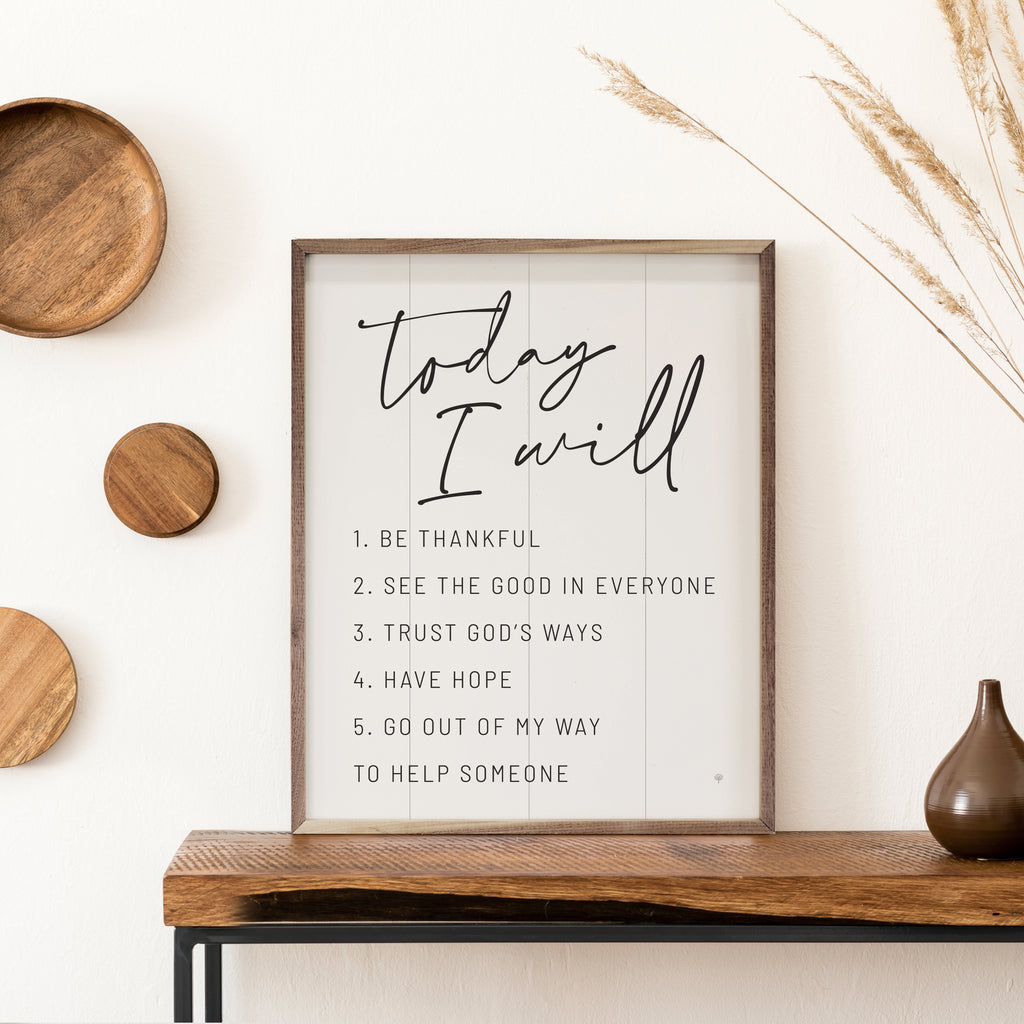 today
I will
1. BE THANKFUL
2. SEE THE GOOD IN EVERYONE
3. TRUST GOD'S WAYS
4. HAVE HOPE
5. GO OUT OF MY WAY
TO HELP SOMEONE